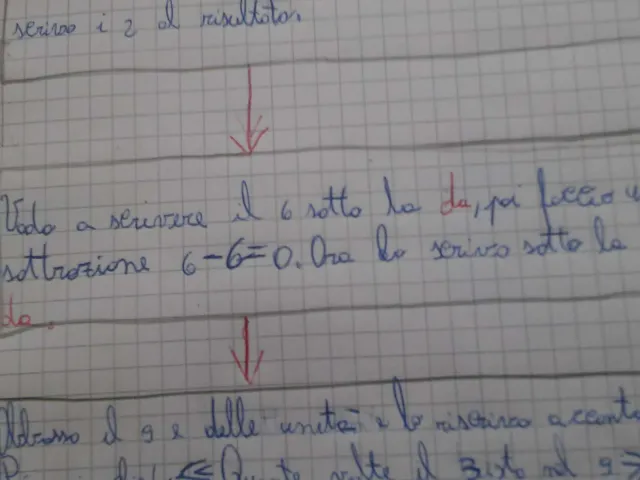 scrivo i 2 al risultato.
Vado a scrivere il 6 sotto la da, poi faccio u
sottrazione 6-6=0. Ora lo scrivo sotto la
da.
Adesso il 9 è delle unità e lo riscrivo accant
volte il 3 sta nel 9 =